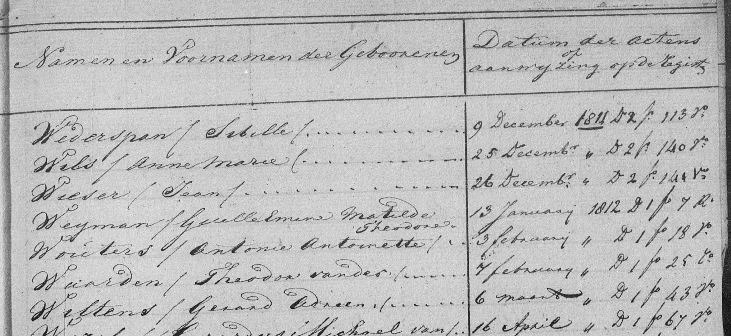 Namen en Voornamen der Geboorenen
Datum der actens
of
aanwyzing op de Regist
Wederspan / Sibille / 9 December 1811 D 2 fo 113 Vo
Wils / Anne Marie / 25 Decembr „ D 2 fo 140 Vo
Wieser / Jean / 26 Decembr „ D 2 fo 141 Vo
Weyman / Guilleelmine Matilde Theodore 13 January 1812 D 1 fo 7 R.
Wouters / Antonie Antoinette / 3 february „ D 1 fo 18 Vo
Waarden / Theodor vander / 7 february „ D 1 fo 25
Wiltens / Gerard Adreen / 6 maart „ D 1 fo 43 Vo
Michael van 16 April „ D 1 fo 67 Vo